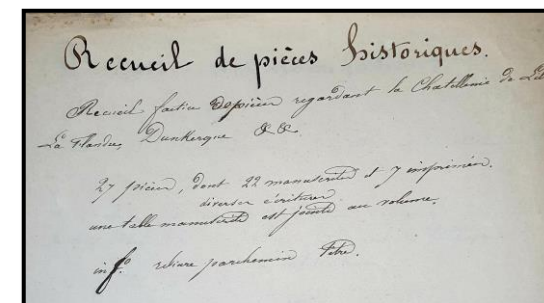 Recueil de pièces historiques.
Recueil factice de pièces regardant la Chatellenie de
La Flandre, Dunkerque &c &c.
27 pièces, dont 22 manuscrites et 7 imprimées.
diverses écritures
une table manuscrite est jointe au volume.
in fo. reliure parchemin titre.